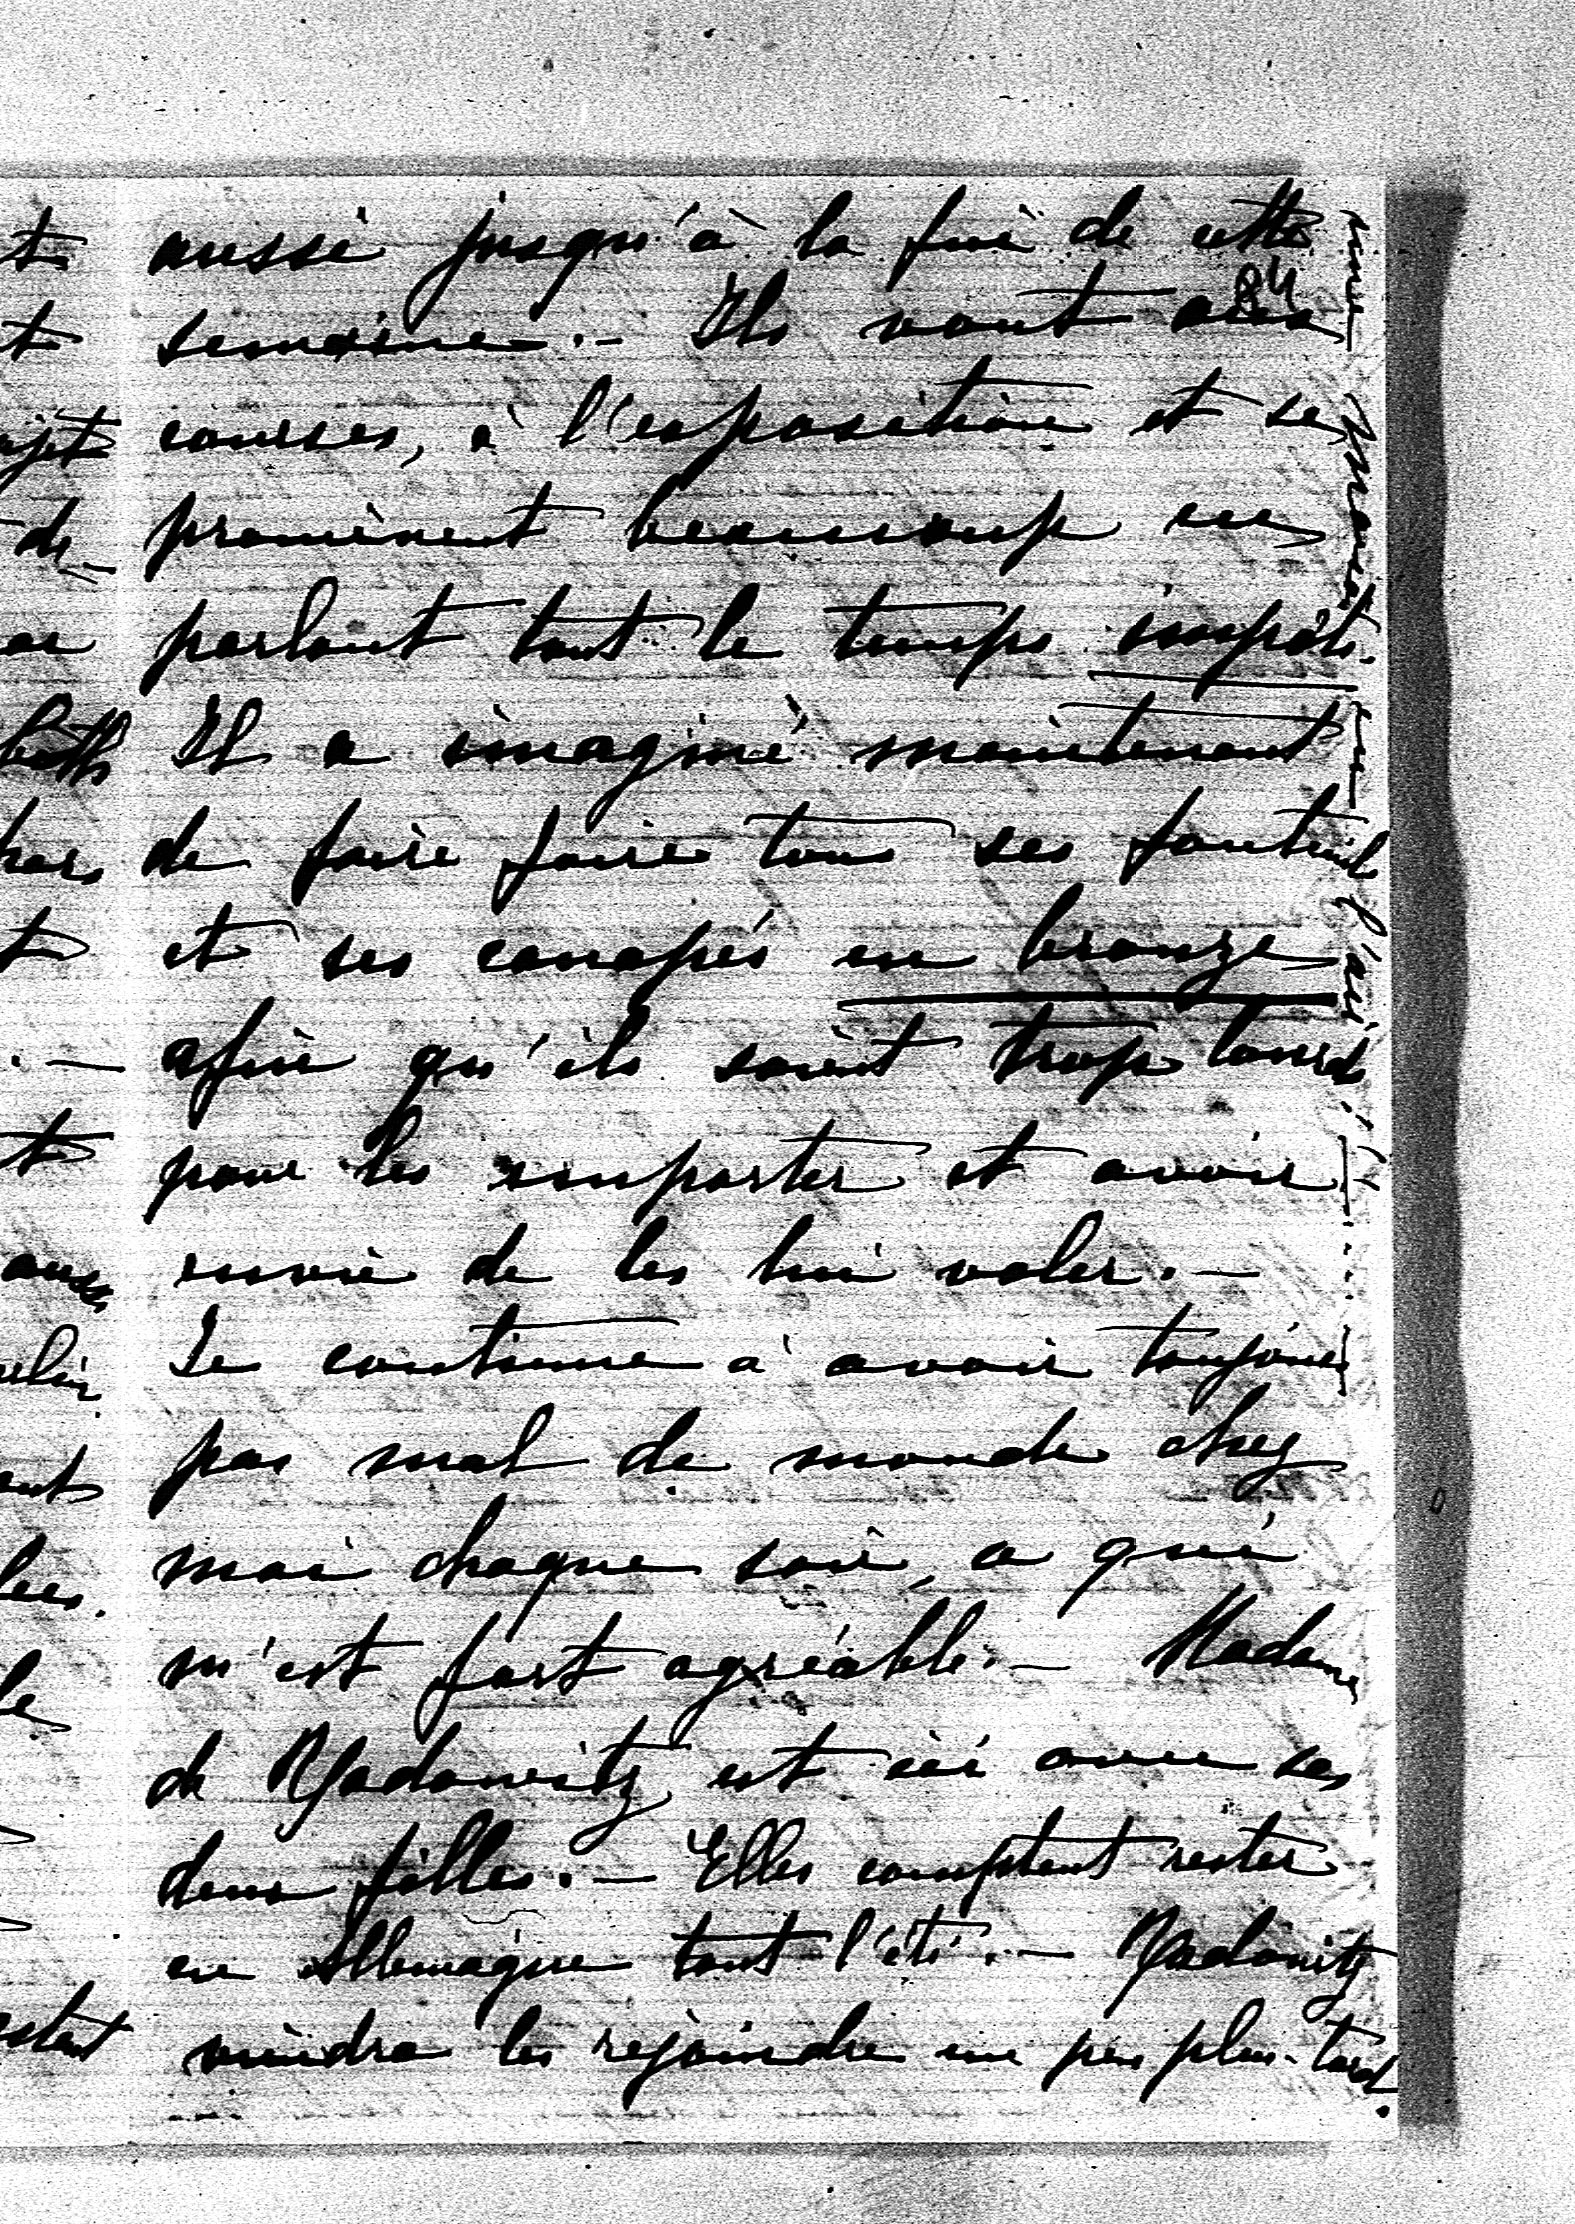 aussi jusqu'à la fin de cette
84
semaine. — Ils vont aux
courses, à l'exposition et se
promènent beaucoup en
parlant tout le temps impôts.
Il a imaginé maintenant
de faire faire tous ses fauteuils
et ses canapés en bronze
afin qu'ils soient trop lourds
pour les emporter et avoir
envie de les lui voler. —
Je continue à avoir toujours
pas mal de monde chez
moi chaque soir, ce qui
m'est fort agréable. — Madame
de Radowitz est ici avec ses
deux filles. — Elles comptent rester
en Allemagne tout l'été. — Radowitz
viendra les rejoindre un peu plus tard.